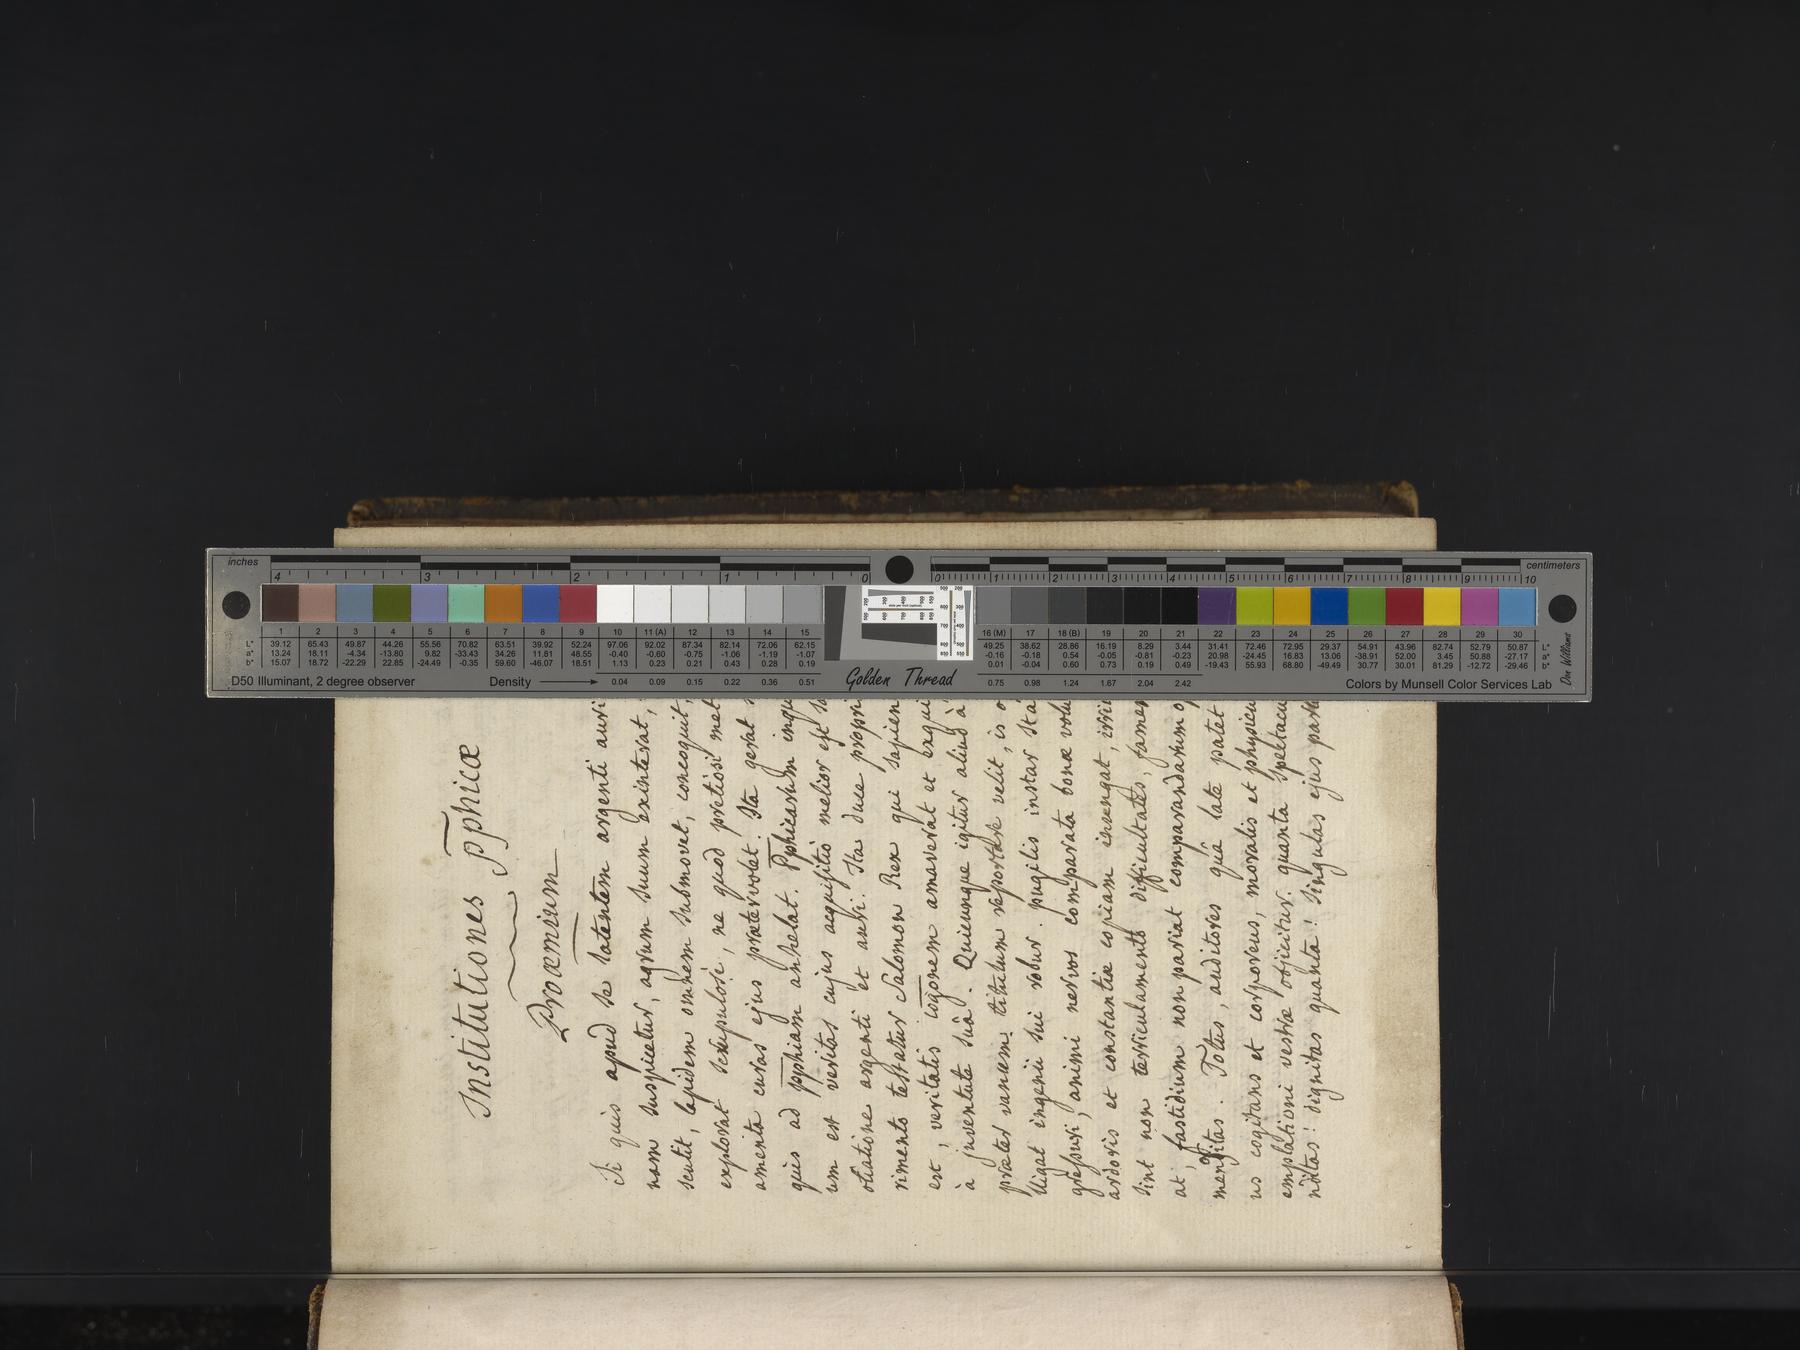 Institutiones Pphicæ
Proæmium
Si quis apud se latentem argenti auri
nam suspicetur, agrum suum exinterat,
scutit, lapidem omnem submovet, concoquit,
explorat scrupulosè, ne quod pretiosi met
amenta curas ejus prætervolet. Ita gerat
quis ad pphiam anhelat. Pphicarum inqu
um est veritas cujus acquisitio melior est
otiatione argenti et auri. Ita duce propri
rimento testatur Salomon Rex qui sapien
est, veritatis cognem amaverat et exqui
à juventute suâ. Quicunque igitur aliud à
præter vanum titulum reportare velit, is
lligat ingenii sui robur. pugilis instar sta
gressuri, animi nervos comparata bonæ volu
ardoris et constantiæ copiam invengat, irri
sint non terriculamento difficultates, fames
at, fastidium non pariat comparandarum
mensitas. Totus, auditores quà late patet
us cogitans et corporeus, moralis et physicu
emplationi vestræ objicitur. quanta spectacu
nditas! dignitas quanta! singulas ejus part
inches
4 3 2 1 0
0 1 2 3 4 5 6 7 8 9 10
centimeters
1 2 3 4 5 6 7 8 9 10 11 (A) 12 13 14 15
L* 39.12 65.43 49.87 44.26 55.56 70.82 63.51 39.92 52.24 97.06 92.02 87.34 82.14 72.06 62.15
a* 13.24 18.11 -4.34 -13.80 9.82 -33.43 34.26 11.81 48.55 -0.40 -0.60 -0.75 -1.06 -1.19 -1.07
b* 15.07 18.72 -22.29 22.85 -24.49 -0.35 59.60 -46.07 18.51 1.13 0.23 0.21 0.43 0.28 0.19
D50 Illuminant, 2 degree observer Density 0.04 0.09 0.15 0.22 0.36 0.51
Golden Thread
16 (M) 17 18 (B) 19 20 21 22 23 24 25 26 27 28 29 30
49.25 38.62 28.86 16.19 8.29 3.44 31.41 72.46 72.95 29.37 54.91 43.96 82.74 52.79 50.87 L*
-0.16 -0.18 0.54 -0.05 -0.81 -0.23 20.98 -24.45 16.83 13.06 -38.91 52.00 3.45 50.88 -27.17 a*
0.01 -0.04 0.60 0.73 0.19 0.49 -19.43 55.93 68.80 -49.49 30.77 30.01 81.29 -12.72 -29.46 b*
0.75 0.98 1.24 1.67 2.04 2.42
Colors by Munsell Color Services Lab
Don Williams